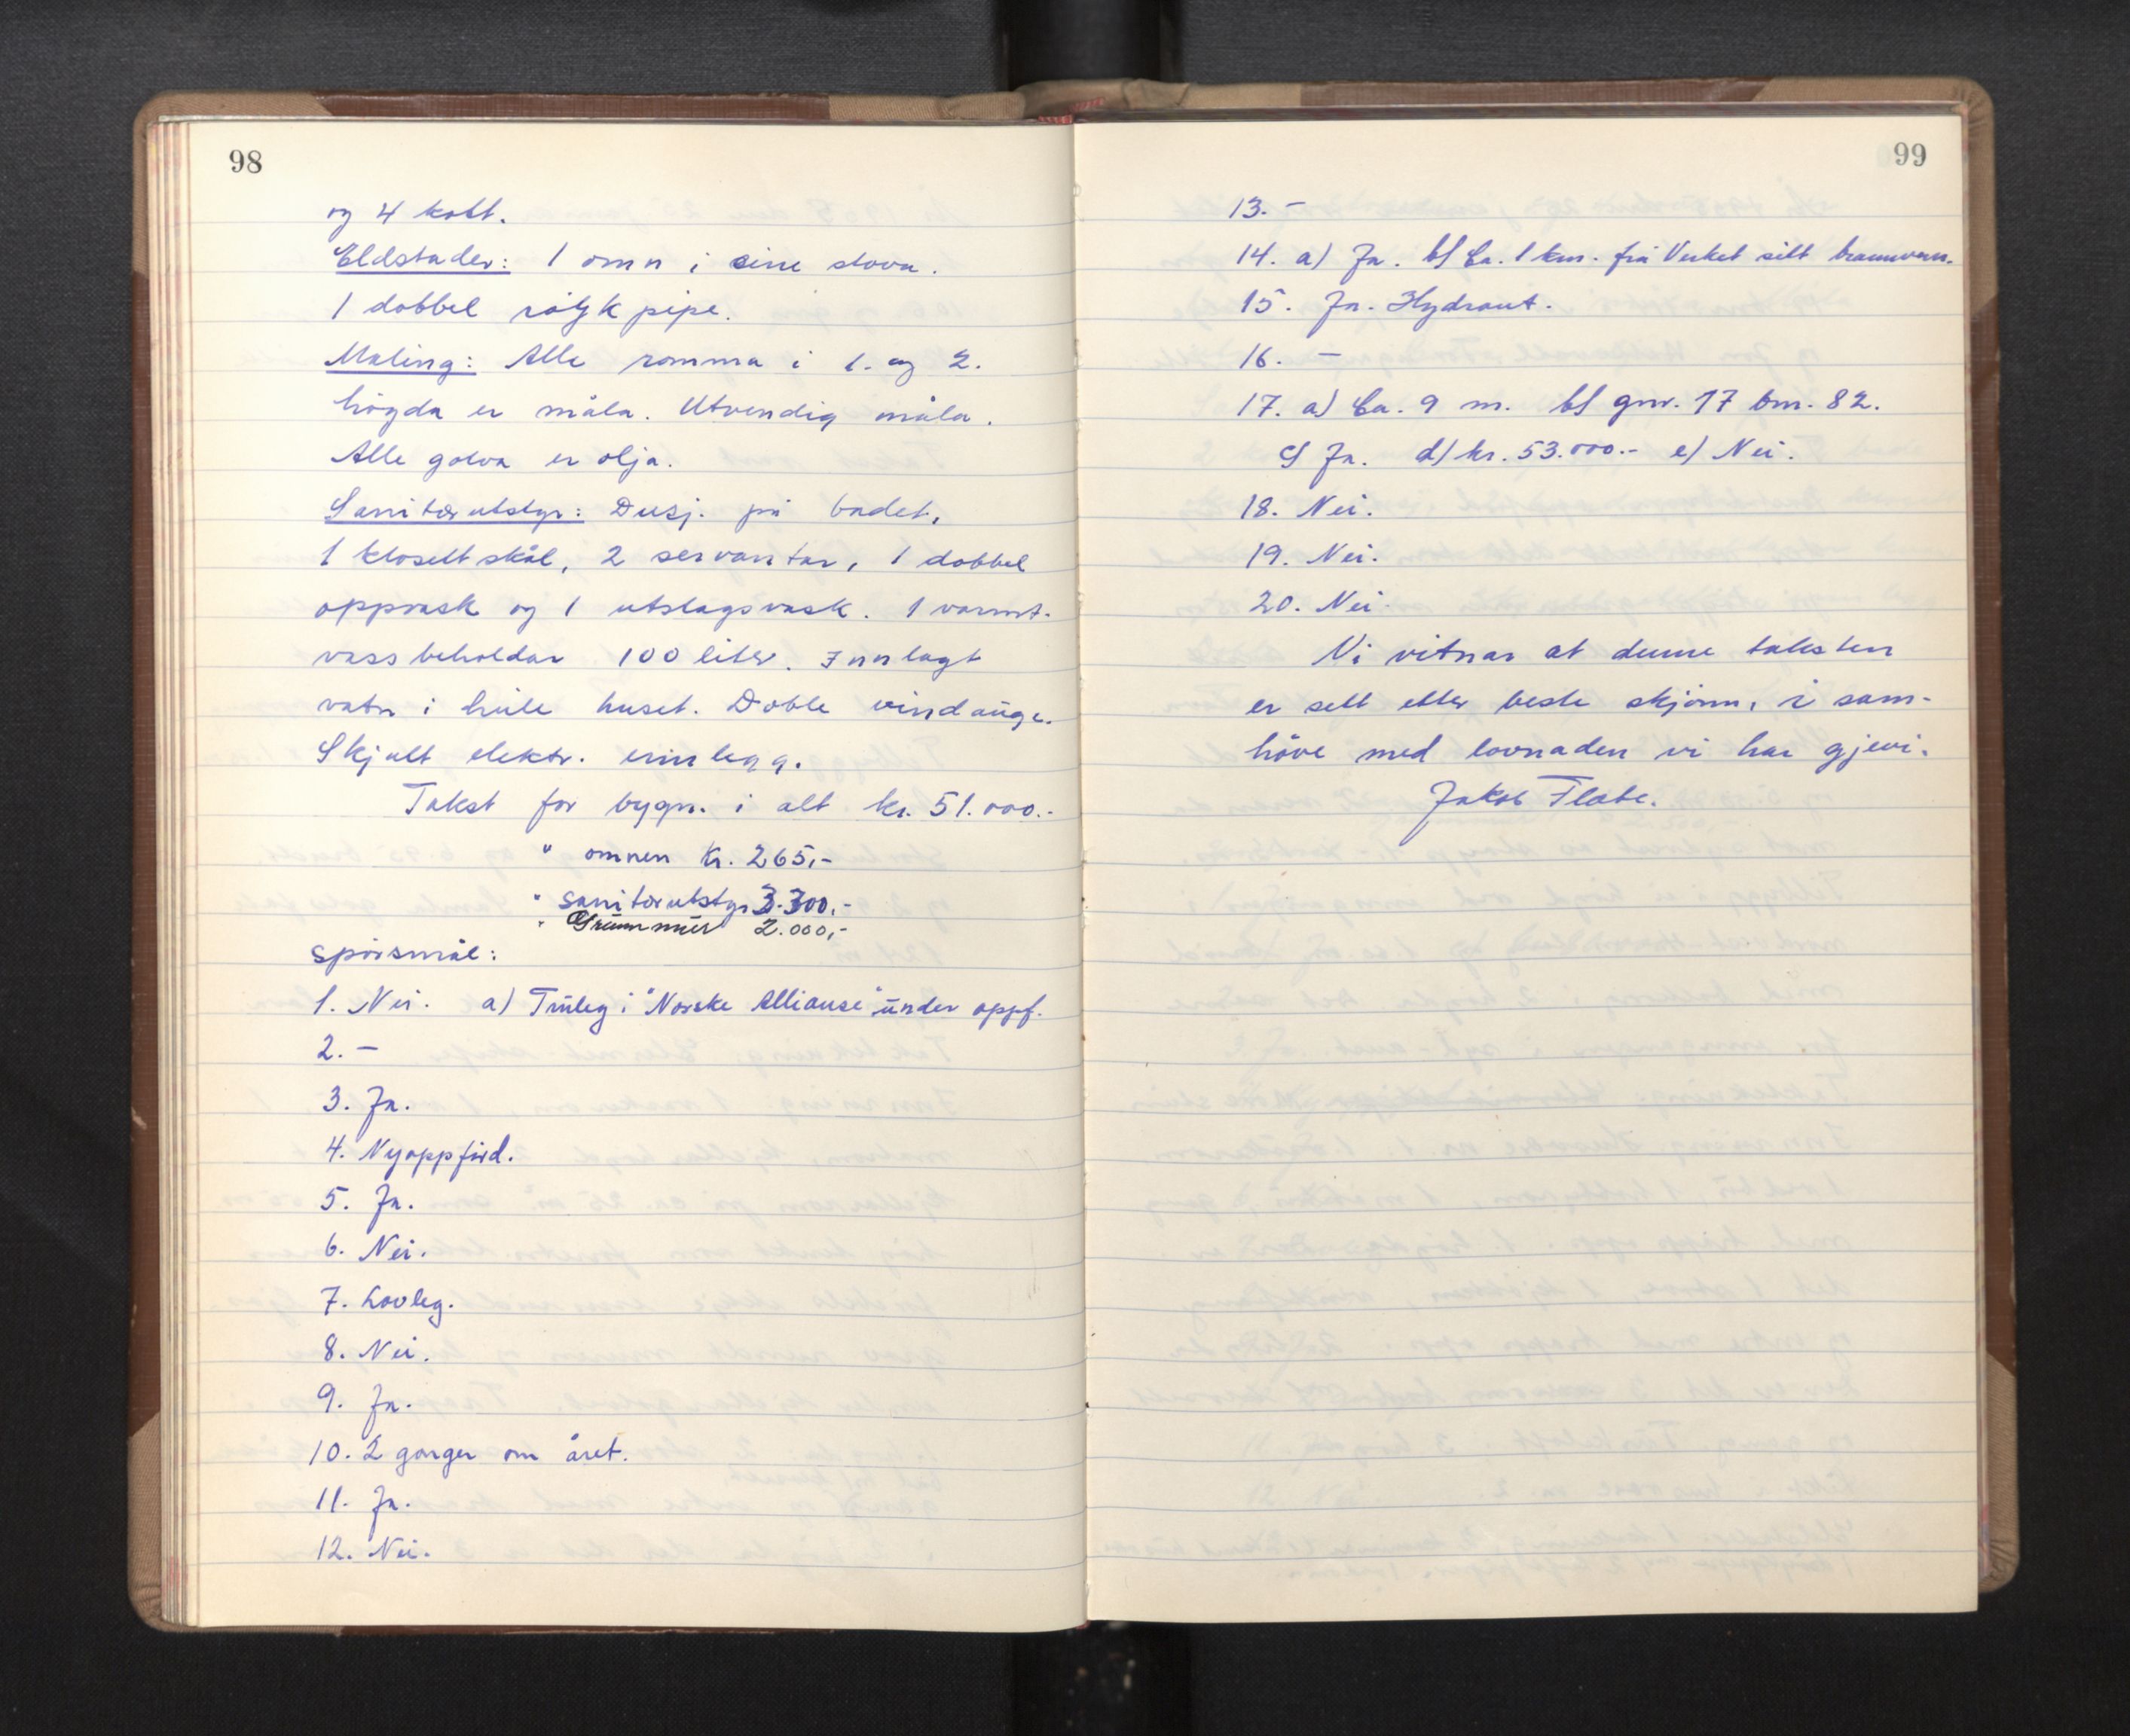 98
og 4 kott.
Eldstader: 1 omn i eine stova.
1 dobbel røykpipe.
Maling: Alle romma i 1. og 2.
høgda er måla. Utvendig måla.
Alle golva er olja.
Sanitærutstyr: Dusj. på badet,
1 klosettskål, 2 servantar, 1 dobbel
oppvask og 1 utslagsvask. 1 varmt-
vassbeholdar 100 liter. Innlagt
vatn i heile huset. Doble vindauge.
Skjult elektr. einlegg.
Takst for bygn. i alt kr. 51.000.-
" omnen kr. 265,-
" sanitærutstyr 3.300,-
" Grunnmur 2.000,-
Spørsmål:
1. Nei. a) Truleg i "Norske Allianse" under oppf.
2. -
3. Ja.
4. Nyoppförd.
5. Ja.
6. Nei.
7. Lovleg.
8. Nei.
9. Ja.
10. 2 ganger om året.
11. Ja.
12. Nei.
99
13. -
14. a) Ja. b) Ca. 1 km. frå Verket sitt brannvern.
15. Ja. Hydrant.
16. -
17. a) Ca. 9 m. b) gnr. 17 bnr. 82.
c) Ja. d) kr. 53.000.- e) Nei.
18. Nei.
19. Nei.
20. Nei.
Vi vitnar at denne taksten
er sett etter beste skjønn, i sam-
høve med lovnaden vi har gjevi.
Jakob Flate.